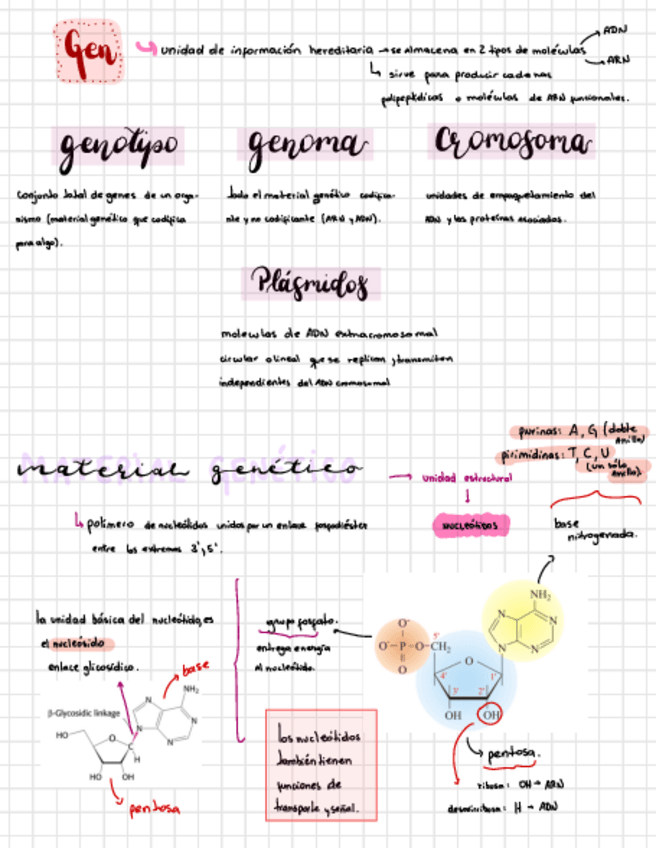 Gen
unidad de información hereditaria → se almacena en 2 tipos de moléculas
ADN
ARN
↳ sirve para producir cadenas
polipeptídicas o moléculas de ARN funcionales.
genotipo
genoma
Cromosoma
Conjunto total de genes de un orga-
nismo (material genético que codifica
para algo).
todo el material genético codifica-
nte y no codificante (ARN y ADN).
unidades de empaquetamiento del
ADN y las proteínas asociadas.
Plásmidos
moléculas de ADN extracromosomal
circular o lineal que se replican y transmiten
independientes del ADN cromosomal
MATERIAL GENÉTICO
material genético
→ unidad estructural
↓
nucleótidos
purinas: A, G (doble
anillo)
pirimidinas: T, C, U
(un sólo
anillo).
base
nitrogenada.
↳ polímero de nucleótidos unidos por un enlace fosfodiéster
entre los extremos 3', 5'.
la unidad básica del nucleótido, es
el nucleósido
enlace glicosídico.
base
β-Glycosidic linkage
NH₂
N
N
N
N
HO
O
C
H
HO OH
pentosa
grupo fosfato.
entrega energía
al nucleótido.
los nucleótidos
también tienen
funciones de
transporte y señal.
NH₂
N
N
N
N
O⁻
O⁻—P—O—CH₂
O
5'
O
4' 1'
3' 2'
OH OH
pentosa.
ribosa: OH → ARN
desoxirribosa: H → ADN